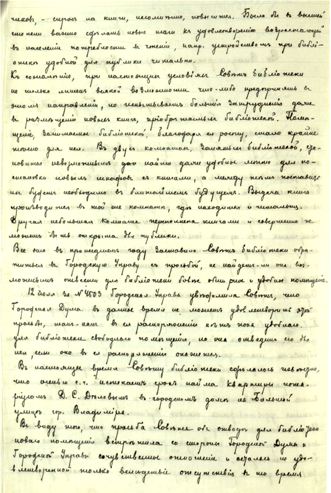 чиков, – спрос на книги, несомненно, повысится. После би в высшей
степени важно сделать новые шаги к удовлетворению возрастающей
в населении потребности в чтении, напр. устройством при библи-
отеке удобной для публики читальни.
К сожалению, при настоящих условиях Совет Библиотеки
не только лишен всякой возможности что-либо предпринять в
этом направлении, но испытывает большие затруднения даже
в размещении новых книг, приобретаемых библиотекой. Поме-
щение, занимаемое библиотекой, благодаря её росту, стало крайне
тесно для нея. В двух комнатах, занятых библиотекой,
положительно нет даже удобных мест для по-
становки новых шкафов с книгами, а между тем постановка
их будет необходима в ближайшем будущем. Выдача книг
производится в той же комнате, где находится и читальня.
Другая небольшая комната переполнена книгами и совершенно не
может быть открыта для публики.
Все это в прошедшем году заставило Совет библиотеки обра-
титься в Городскую Управу с просьбой, не найдет ли она воз-
можным отвести для библиотеки более обширное и удобное помещение.
12 июля за № 4503 Городская Управа уведомила Совет, что
Городская Дума в данное время не может удовлетворить этой
просьбы, так как в ее распоряжении нет удобного
для библиотеки свободного помещения, но она отведет его
ей, если оно в ее распоряжении окажется.
В настоящее время Совету библиотеки сделалось известно,
что осенью с. г. истекает срок найма квартиры
Д. С. в городском доме на Большой
улице гор. Владимира.
В виду того, что просьба Совета об отводе для библиотеки
нового помещения встретила со стороны Городской Думы и
Городской Управы сочувственное отношение и осталась не удо-
влетворенной только вследствие отсутствия в то время